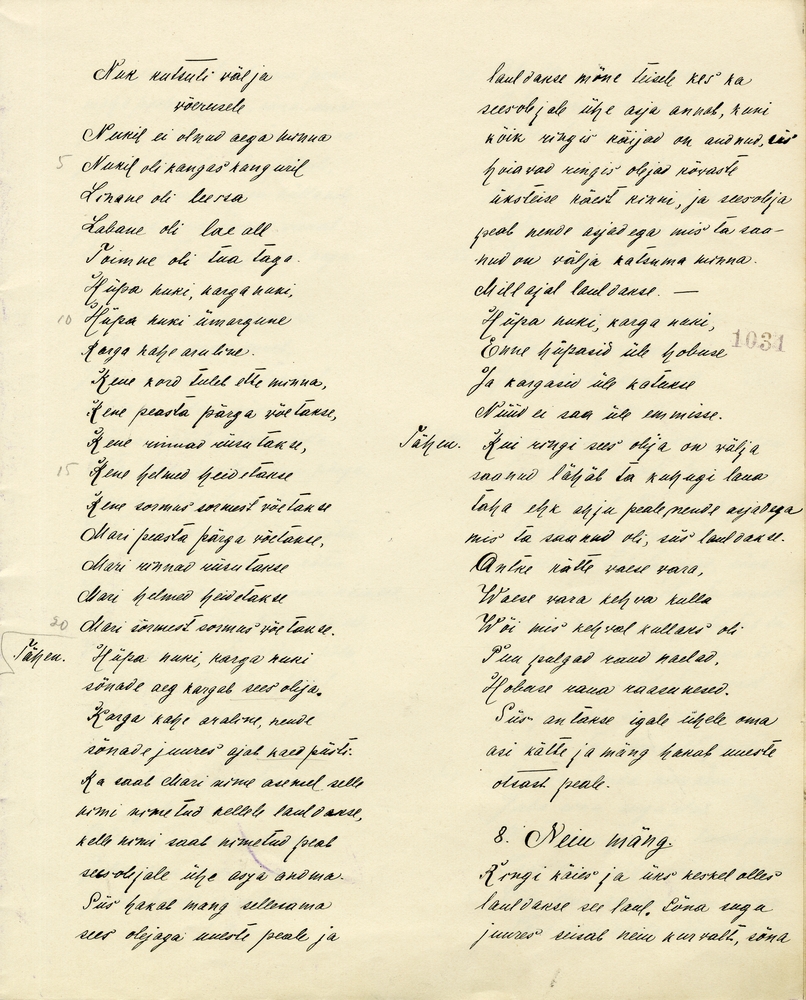 Nuk kutsuti välja
võerusele
Nukil ei olnud aega minna
5 Nukil oli kangas kanguril
Linane oli leessa
Labane oli lae all
Toimne oli tua taga.
Hüpa nuki, karga nuki,
10 Hüpa nuki ümargune
Karga kahe araline.
Kene kord tuleb ette minna,
Kene peasta pärga võetakse,
Kene rinnad riisutakse,
15 Kene helmed heidetakse
Kene sormus sormest võetakse
Mari peasta pärga võetakse,
Mari rinnad riisutakse
Mari helmed heidetakse
20 Mari sõrmest sormus võetakse.
Tähen. Hüpa nuki, karga nuki
sõnade aeg kargab sees olija.
Karga kahe araline, nende
sõnade juures ajab kaed püsti.
Ka saab Mari nime asemel selle
nimi nimetud kellele lauldakse,
kelle nimi saab nimetud peab
seesolejale ühe asja andma.
Siis hakab mäng sellesama
sees olejaga uueste peale ja
lauldakse mõne teisele kes ka
seesolejale ühe asja annab, kuni
kõik ringis käijad on andnud, siis
hoiavad ringis olejad kõvaste
üksteise käest kinni, ja seesoleja
peab nende asjadega mis ta saa-
nud on välja katsuma minna.
Mill ajal lauldakse. —
Hüpa nuki, karga nuki,
1031
Enne hüpasid üle hobuse
Ja kargasid üle katukse
Nüüd ei saa üle emmisse.
Tähen. Kui ringi sees olija on välja
saanud lähäb ta kuhugi laua
taha ehk ahju peale nende asjadega
mis ta saanud oli, siis lauldakse.
Antke kätte vaese vara,
Waese vara kehva kulla
Wõi mis kehval kullaks oli
Puu pulgad raud naelad,
Hobuse raua raasukesed.
Siis antakse igale ühele oma
asi kätte ja mäng hakab uueste
otsast peale.
8. Neiu mäng.
Ringi käies ja üks keskel olles
lauldakse see laul. Sõna suga
juures seisab neiu kurvalt, sõna